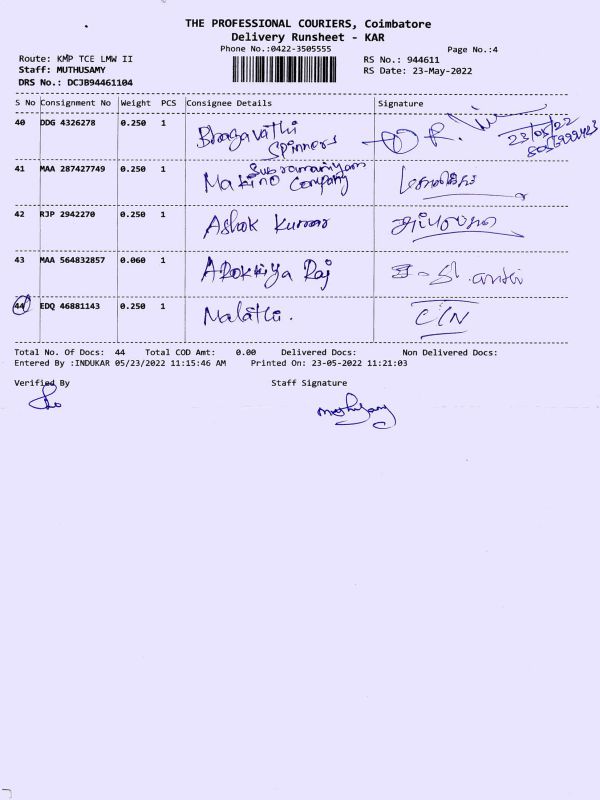 THE PROFESSIONAL COURIERS, Coimbatore
Delivery Runsheet - KAR
Phone No.:0422-3505555
Page No.:4
Route: KMP TCE LMW II
RS No.: 944611
Staff: MUTHUSAMY
RS Date: 23-May-2022
DRS No.: DCJB94461104
S No Consignment No Weight PCS Consignee Details Signature
40 DDG 4326278 0.250 1 Bhagavathi
Spinners
23/05/22
41 MAA 287427749 0.250 1 Subramaniyam
Makino Company
42 RJP 2942270 0.250 1 Ashok Kumar
43 MAA 564832857 0.060 1 AROKKIYA Raj
44 EDQ 46881143 0.250 1 Malathi.
Total No. Of Docs: 44 Total COD Amt: 0.00 Delivered Docs: Non Delivered Docs:
Entered By :INDUKAR 05/23/2022 11:15:46 AM Printed On: 23-05-2022 11:21:03
Verified By Staff Signature